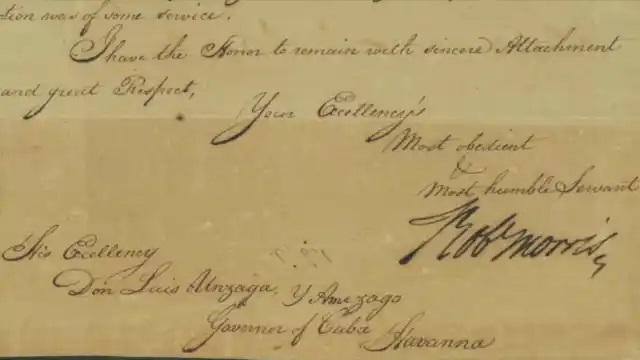 tion was of some service.
I have the Honor to remain with sincere Attachment
and great Respect,
Your Excellency's
Most obedient
&
Most humble Servant
Robt Morris
His Excellency
Don Luis Unzaga, Y Amezago
Governor of Cuba Havanna